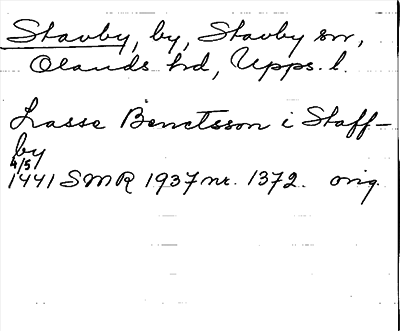 Stavby, by, Stavby sn,
Olands hd, Upps. l.
Lasse Benctsson i Staff-
by
4/5
1441 SMR 1937 nr. 1372. orig.